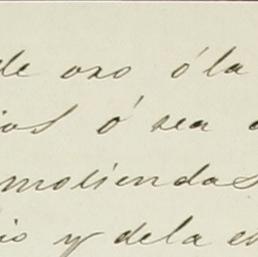 de oro ó la
ios ó sea
moliendas
io y dela e